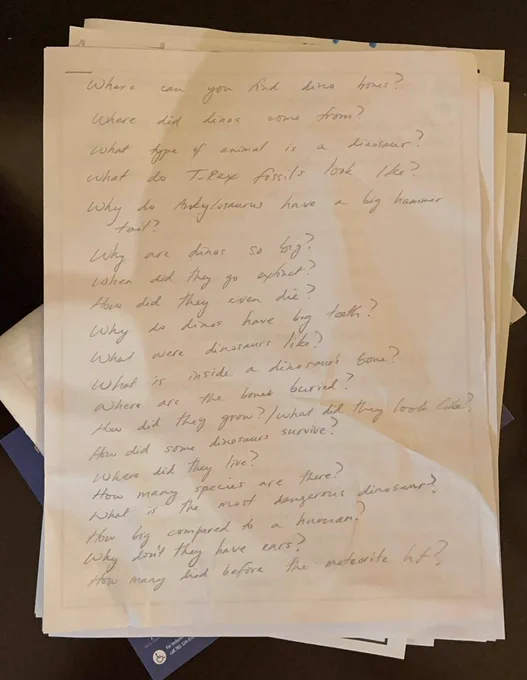 Where can you find dino bones?
Where did dinos come from?
What type of animal is a dinosaur?
What do T-Rex fossils look like?
Why do Ankylosaurus have a big hammer
tail?
Why are dinos so big?
When did they go extinct?
How did they even die?
Why do dinos have big teeth?
What were dinosaurs like?
What is inside a dinosaur's bone?
Where are the bones buried?
How did they grow?/What did they look like?
How did some dinosaurs survive?
Where did they live?
How many species are there?
What is the most dangerous dinosaur?
How big compared to a human?
Why don't they have ears?
How many died before the meteorite hit?